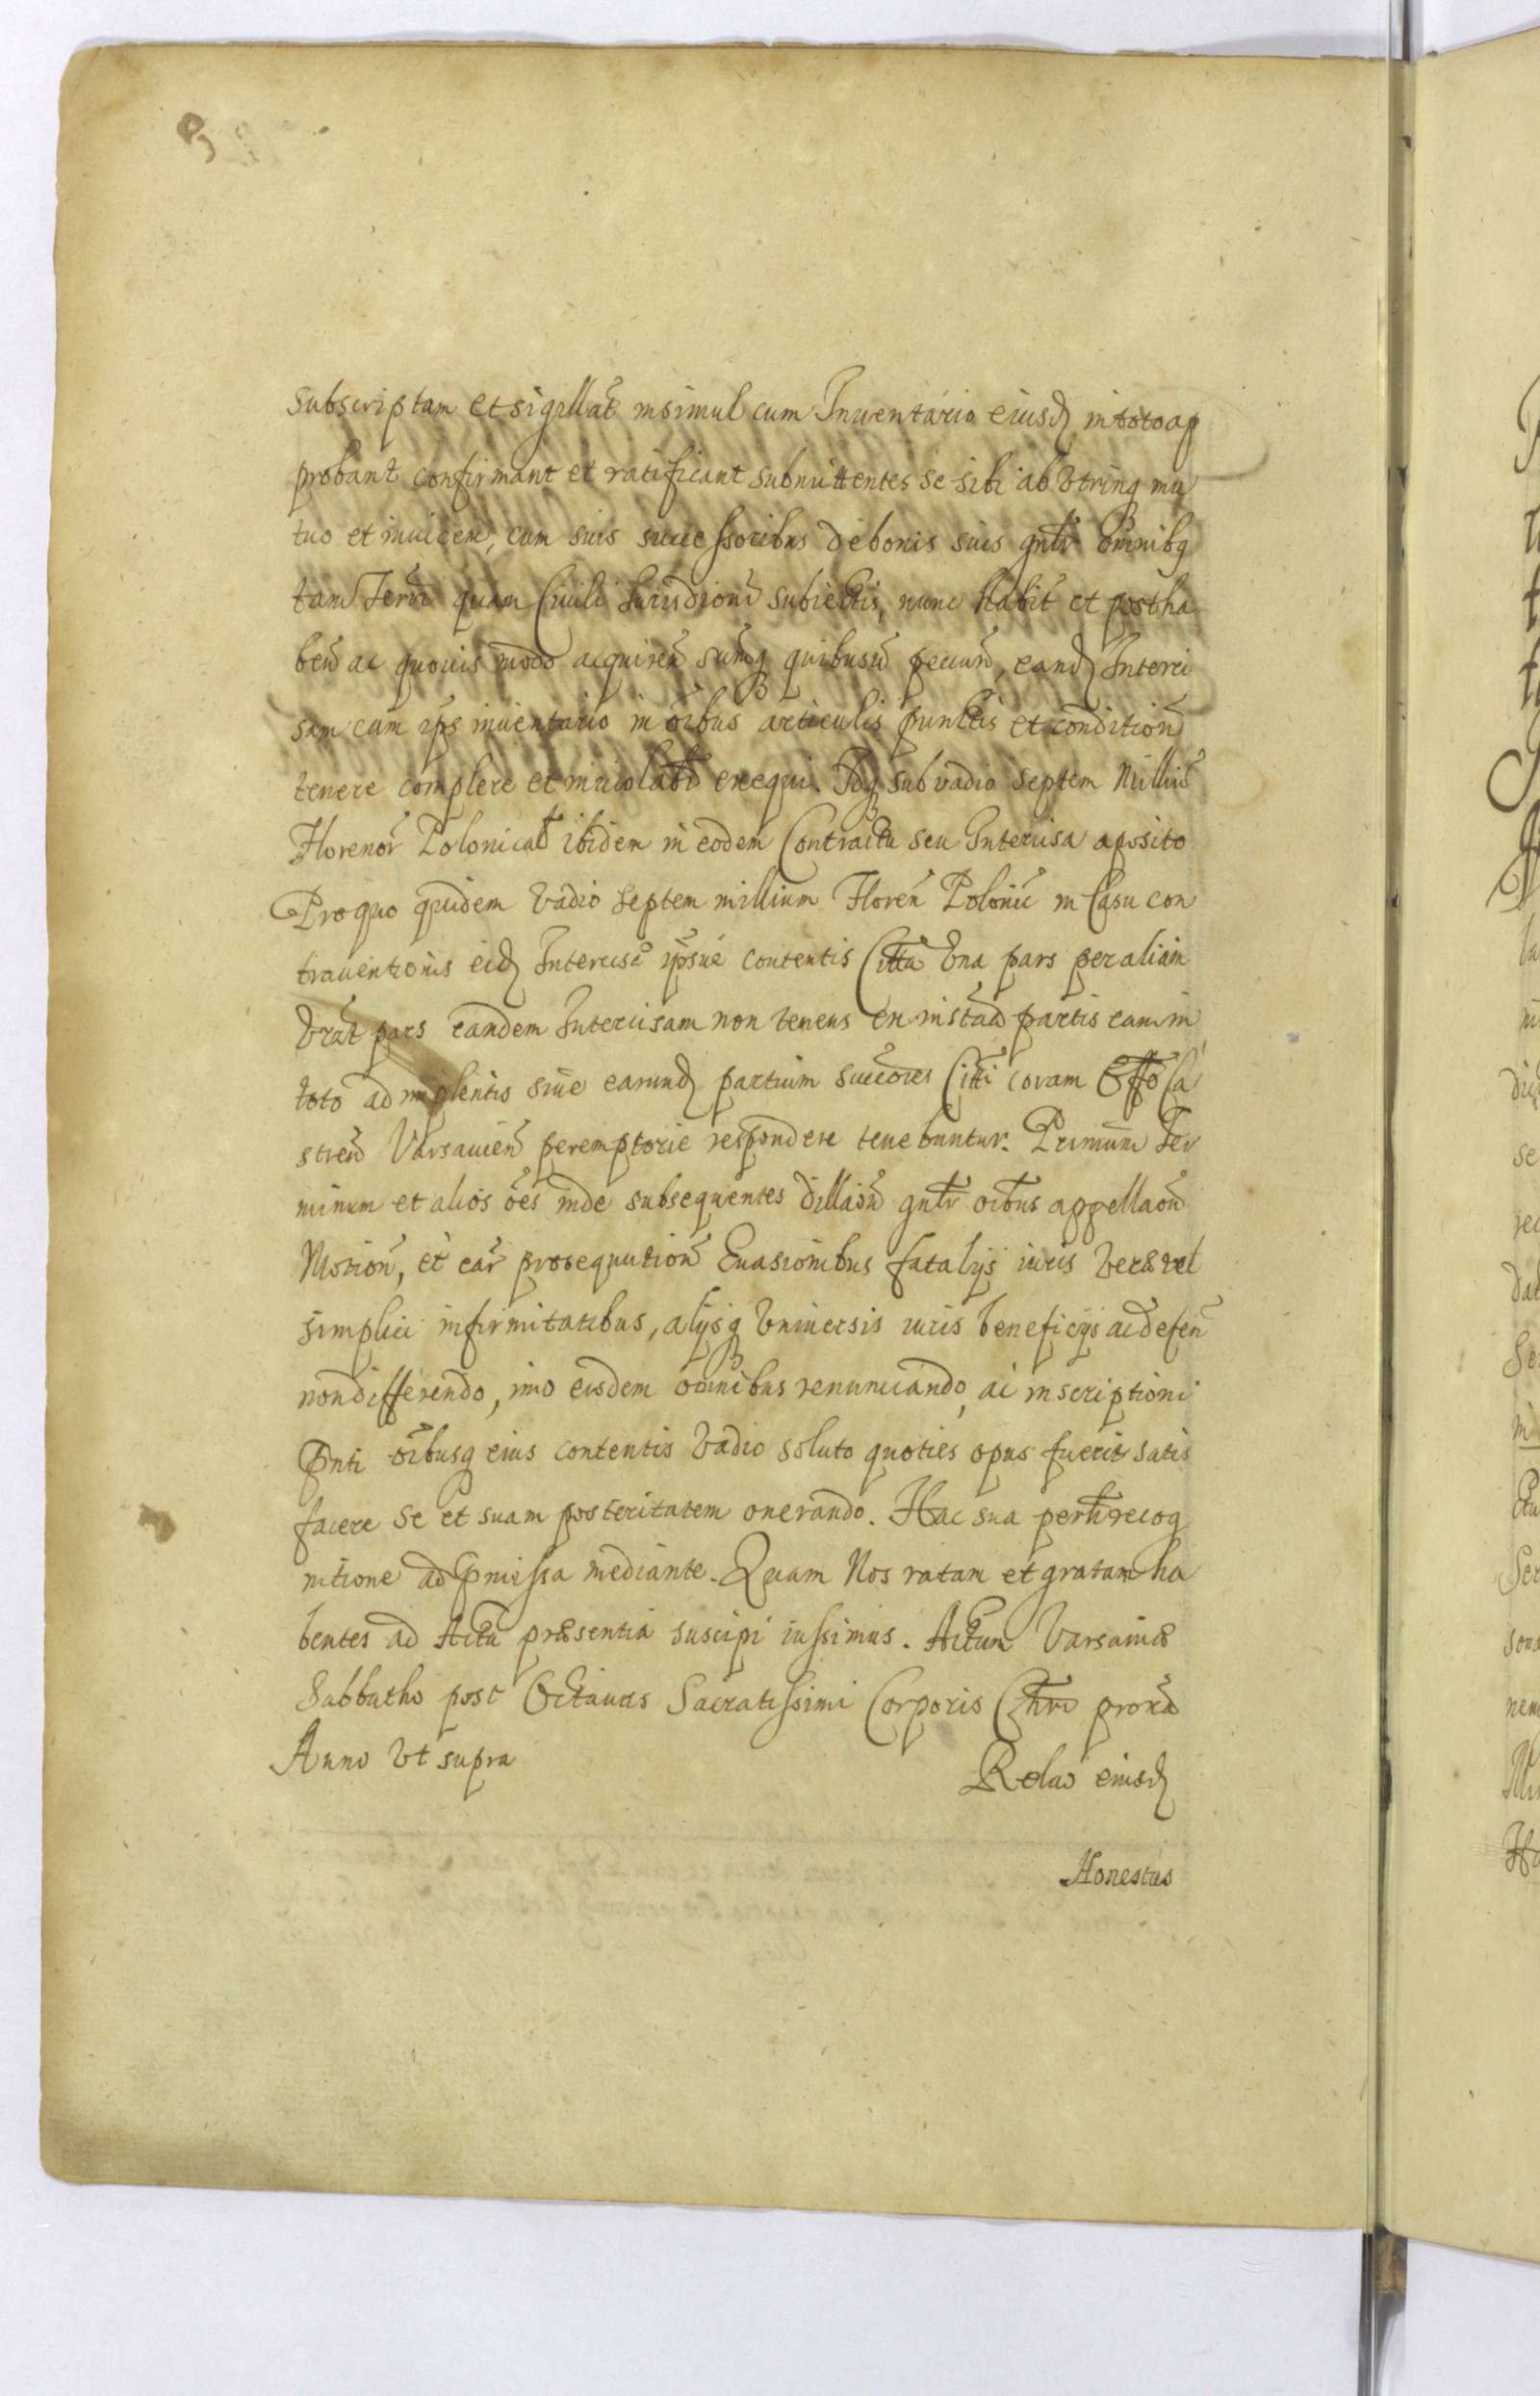 subscriptam et sigillat̃ insimul cum Inventário eiusd in toto ap
probant confirmant et ratificant submittentes se sibi ab Vtrinq mu
tuo et inuicem, cum suis successoribus de bonis suis gñlr omnibq
tam Terri quam Ciuili Iurisdioni subiectis, nunc habit̃ et postha
beñ ac quouis modo acquireñ sum̃q quibusũ pecun̄, eand Interci
sam cum ips inuentario in õibus articulis punctis et condition̄
tenere complere et inuiolabł exequi. Idq sub vadio septem Milliũ
Florenor̃ Polonical ibidem in eodem Contractu seu Intercisa aposito
Pro quo quidem Vadio septem millium Floren̄ Poloniĉ in Casu con
trauentionis eid Intercisæ ipsue contentis Citta Vna pars per aliam
Vrãt pars eandem Intercisam non tenens en instañ partis eam in
toto adimplentis siue earund partium succores Citti coram Offo Ca
stren̄ Varsauien̄ peremptorie respondere tenebuntur. Primum Ter
minum et alios õẽs inde subsequentes dillaõn̄ gñlr oĩbus appellaõn̄
Motion̄, et ear̃ prosequution̄ Euasionibus fatalijs iuris Vera vel
simplici infirmitatibus, alijsq Vniuersis iuris beneficijs ac defen̄
non differendo, imo eisdem omnibus renunciando, ac inscriptioni
Pnti õibusq eius contentis Vadio soluto quoties opus fuerit satis
facere se et suam posteritatem onerando. Hac sua perhr̃ recog
nitione ad Pmissa mediante. Quam Nos ratam et gratam ha
bentes ad Acta præsentia suscipi iussimus. Actum Varsauiæ
Sabbatho post Octauas Sacratissimi Corporis Chri prox̃a
Anno Vt supra
Relaõ eiusd
Honestus